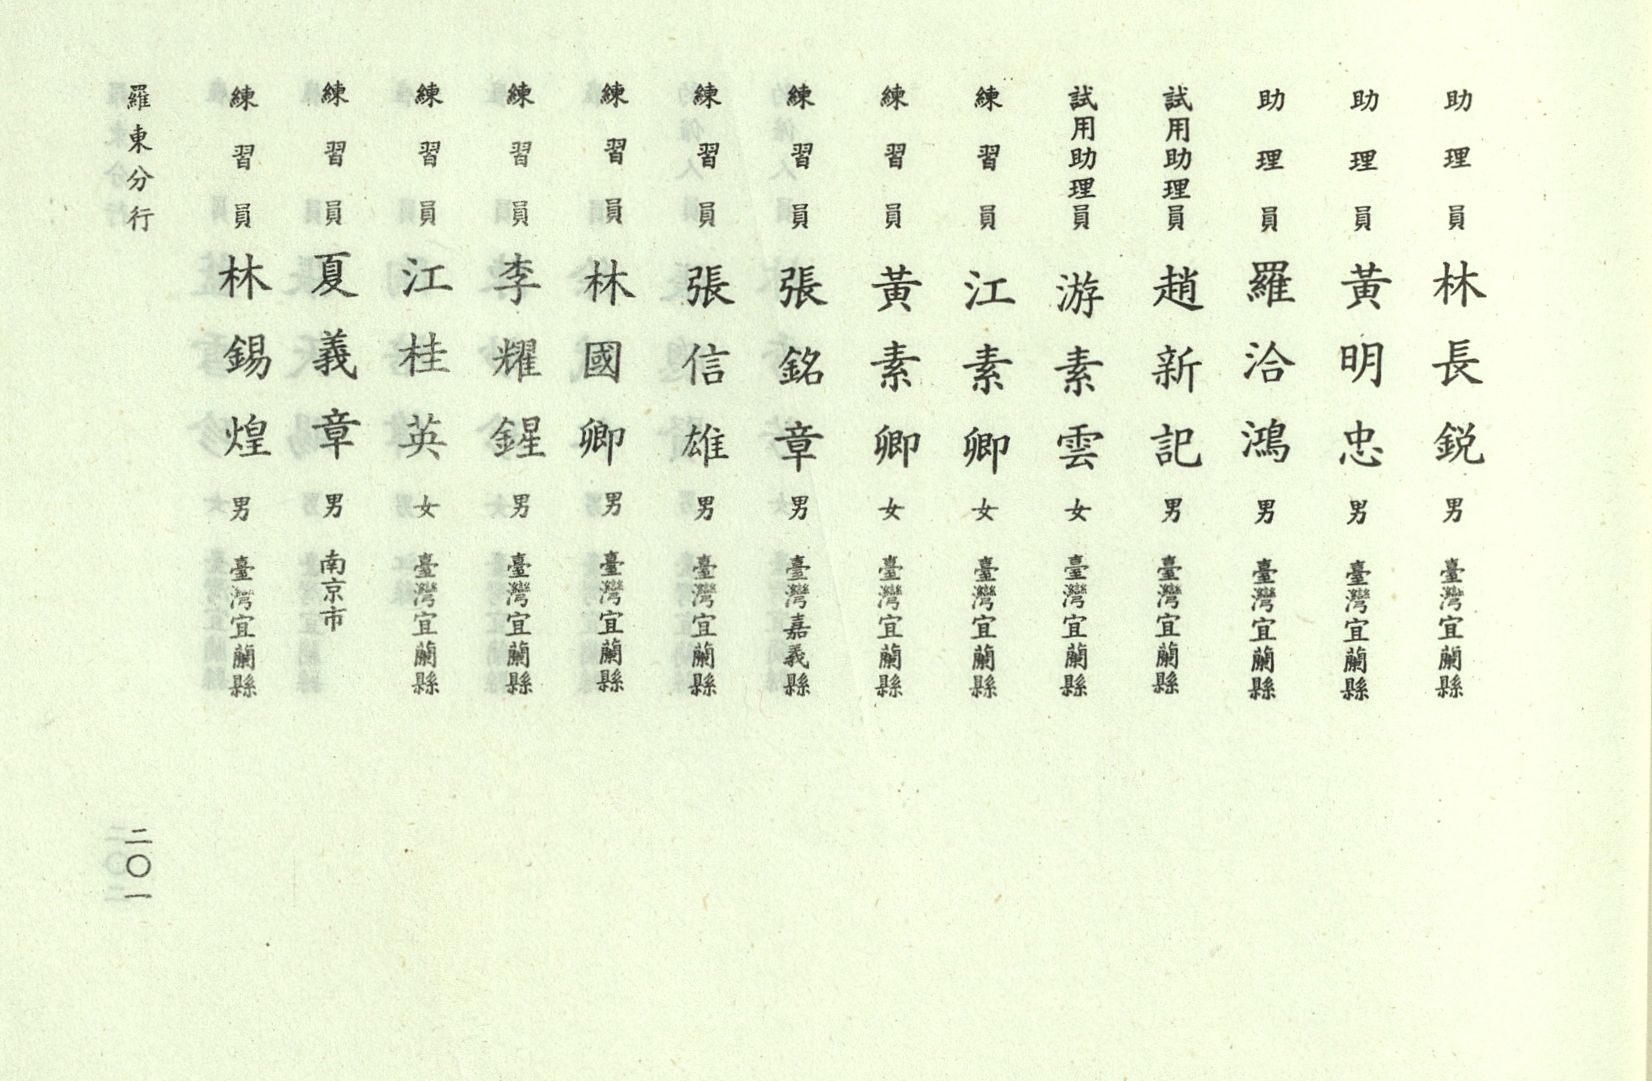 助理員 林長銳 男 臺灣宜蘭縣
助理員 黃明忠 男 臺灣宜蘭縣
助理員 羅洽鴻 男 臺灣宜蘭縣
試用助理員 趙新記 男 臺灣宜蘭縣
試用助理員 游素雲 女 臺灣宜蘭縣
練習員 江素卿 女 臺灣宜蘭縣
練習員 黃素卿 女 臺灣宜蘭縣
練習員 張銘章 男 臺灣嘉義縣
練習員 張信雄 男 臺灣宜蘭縣
練習員 林國卿 男 臺灣宜蘭縣
練習員 李耀鍟 男 臺灣宜蘭縣
練習員 江桂英 女 臺灣宜蘭縣
練習員 夏義章 男 南京市
練習員 林錫煌 男 臺灣宜蘭縣
羅東分行 二〇一